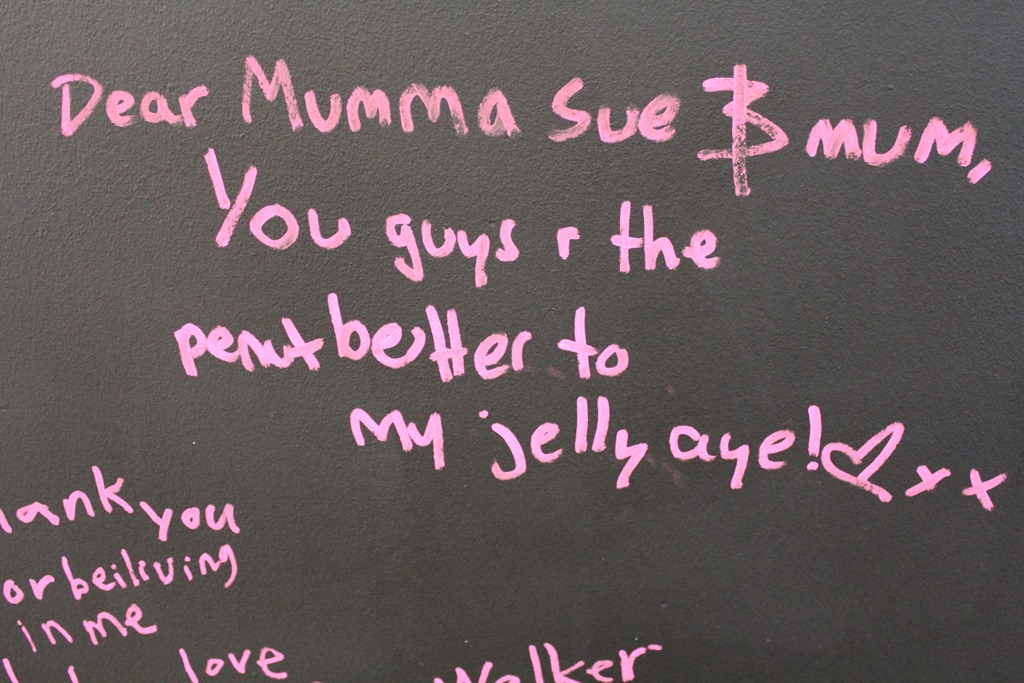 Dear Mumma Sue & mum,
You guys r the
penut beutter to
my jelly aye! xx
hank you
or beiliving
in me
love Walker